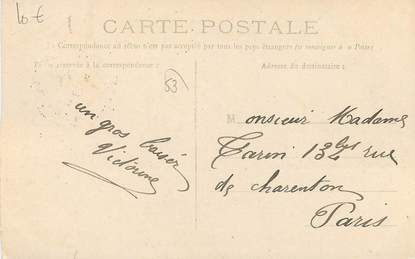 10 €
CARTE POSTALE
Correspondance au verso n'est pas accepté par tous les pays étrangers (se renseigner à la Poste)
réservée à la correspondance :
Adresse du destinataire :
53
un gros baiser
Victorine
Monsieur Madame
Tarin 13 bis rue
de charenton
Paris